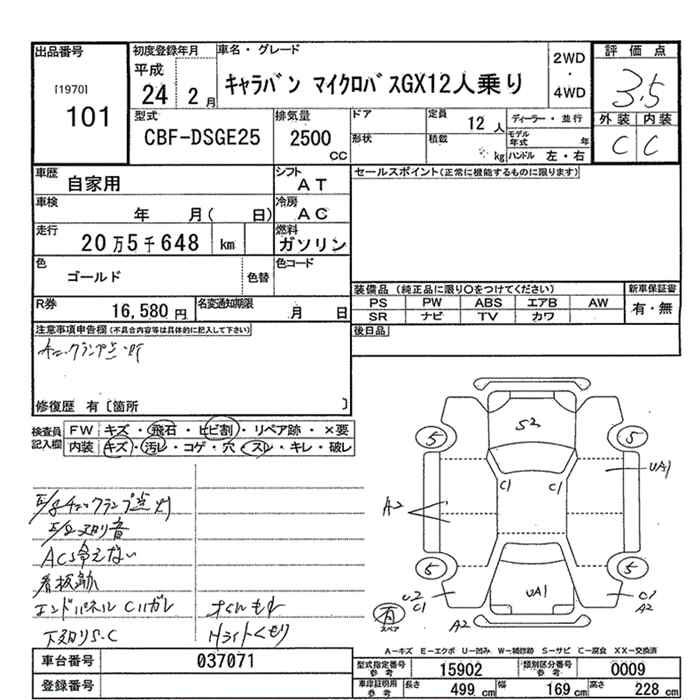 出品番号
[1970]
101
初度登録年月
平成
24 2 月
車名・グレード
キャラバン マイクロバスGX12人乗り
2WD
・
4WD
評価点
3.5
外装 内装
C C
型式
CBF-DSGE25
排気量
2500
CC
ドア
形状
定員
12 人
積載
kg
ディーラー・並行
モデル
年式 年
ハンドル 左・右
車歴
自家用
シフト
AT
セールスポイント(正常に機能するものに限ります)
車検
年 月( 日)
冷房
AC
走行
20万5千648 km
燃料
ガソリン
色
ゴールド
色替
色コード
R券
16,580 円
名変通知期限
月 日
装備品 (純正品に限り〇をつけてください)
PS PW ABS エアB AW
SR ナビ TV カワ
新車保証書
有・無
後日品
注意事項申告欄(不具合内容等は具体的に記入して下さい)
修復歴 有[箇所 ]
検査員
記入欄
FW キズ・飛石・ヒビ割・リペア跡・×要
内装 キズ・汚レ・コゲ・穴・スレ・キレ・破レ
E/gチェックランプ点灯
ACS冷えない
エンドパネル
下廻りS.C
Hライトくもり
S2
5
5
C1
C1
UA1
A2
5
5
UA1
U2
C1
A2
C1
A2
有
スペア
A-キズ E-エクボ U-凹み W-補修跡 S-サビ C-腐食 XX-交換済
車台番号 037071
登録番号
型式指定番号
参考
15902
類別区分番号
参考
0009
車庫証明用
参考
長さ 499 cm 幅 169 cm 高さ 228 cm